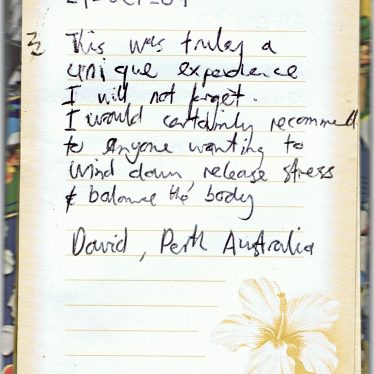 This was truley a
unique experience
I will not forget.
I would certainly recommend
to anyone wanting to
wind down, release stress
& balance the body
David, Perth Australia